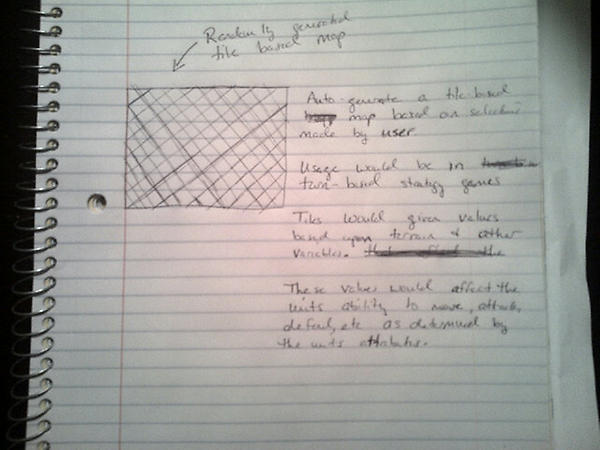 Randomly generated
tile based map
Auto-generate a tile-based
map based on selections
made by user
Usage would be in
turn-based strategy games
Tiles would given values
based upon terrain & other
variables. that affect the
These values would affect the
units ability to move, attack,
defend, etc as determined by
the units attributes.